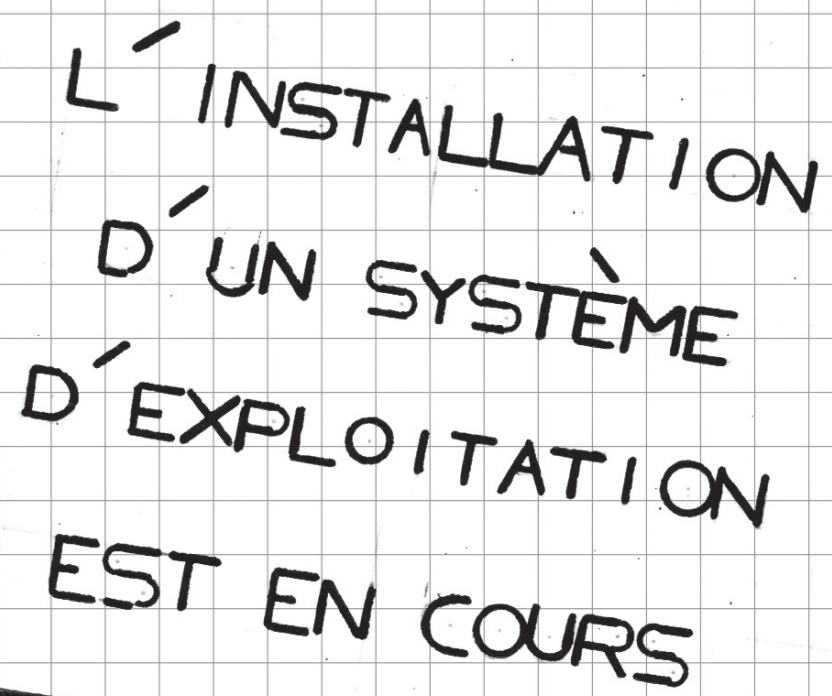 L'INSTALLATION
D'UN SYSTÈME
D'EXPLOITATION
EST EN COURS